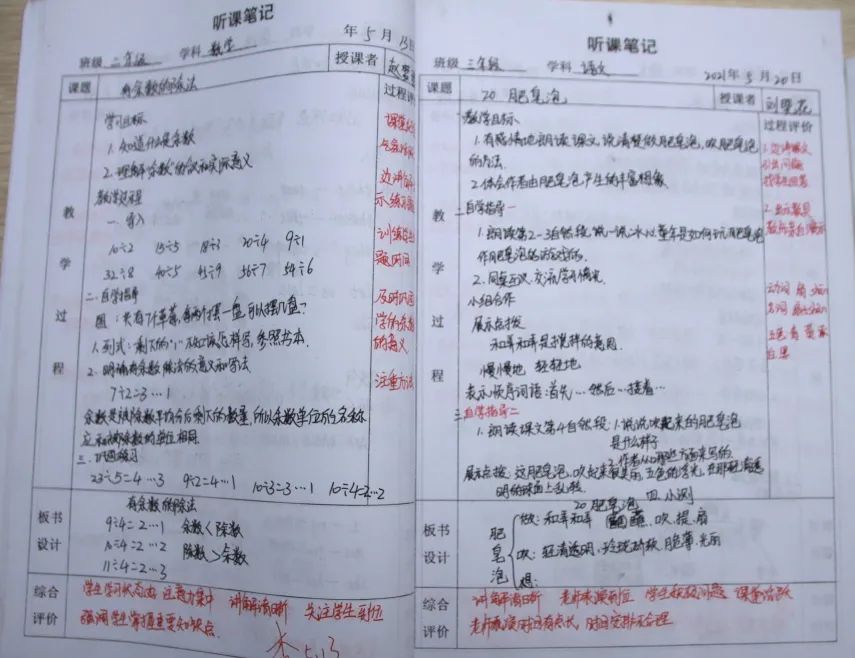 听课笔记
年5月13日
班级 二年级 学科 数学 授课者 赵
课题 有余数的除法 过程评
学习目标
1. 知道什么是余数
2. 理解"余数"的含义和实际意义
教学过程
一. 导入
10÷2 15÷5 18÷3 20÷4 9÷1
32÷8 40÷5 45÷9 56÷7 54÷6
二. 自学指导
图:共有7个草莓,每两个摆一盘,可以摆几盘?
1. 列式:剩下的"1"放应该怎样写,参照书本.
2. 明确有余数除法的意义和写法
7÷2=3…1
余数是被除数平均分后剩下的数量,所以余数单位的名称
应和被除数的单位相同.
三. 巩固练习
23÷5=4…3 9÷2=4…1 10÷3=3…1 10÷4=2…2
教学过程
及时巩固
学的余数
的意义
注重方法
板书设计
有余数的除法
9÷4=2…1 余数<除数
10÷4=2…2 除数>余数
11÷4=2…3
综合评价
学生学习状态好 注意力集中 讲解清晰 关注学生到位
强调学生掌握重要知识点.
5.13
听课笔记
班级 三年级 学科 语文 2021年5月20日
课题 20 肥皂泡 授课者 刘
教学目标 过程评价
1. 有感情地朗读课文,说清楚做肥皂泡,吹肥皂泡
的方法.
2. 体会作者由肥皂泡产生的丰富想象.
二自学指导一
1. 朗读第2-3自然段,说一说,小冰心童年是如何玩肥皂泡
2. 同桌交流学习情况.
小组合作
展示点拨
和弄和弄是搅拌的意思.
慢慢地 轻轻地
表示顺序词语:首先…然后…接着…
三自学指导二
1. 朗读课文第4自然段:1. 说说吹起来的肥皂泡
是什么样子
2. 作者从哪些方面来写的
展示点拨:这肥皂泡,吹起来很美丽,五色的浮光,在那轻清透
明的球面上乱转.
四. 小测
教学过程
板书设计
20 肥皂泡
肥皂泡
做:和弄和弄 蘸,吹,提,扇
吹:轻清透明,玲珑娇软,脆薄,光丽
想:
综合评价
讲解清晰 老师表演到位 学生积极问题 课堂活跃
老师表演时间有点长,时间安排不合理.